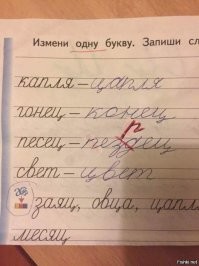 Измени одну букву. Запиши сл
капля – цапля
гонец – конец
песец – пездец
р
свет – цвет
заяц, овца, цапл
месяц
Fishki.net